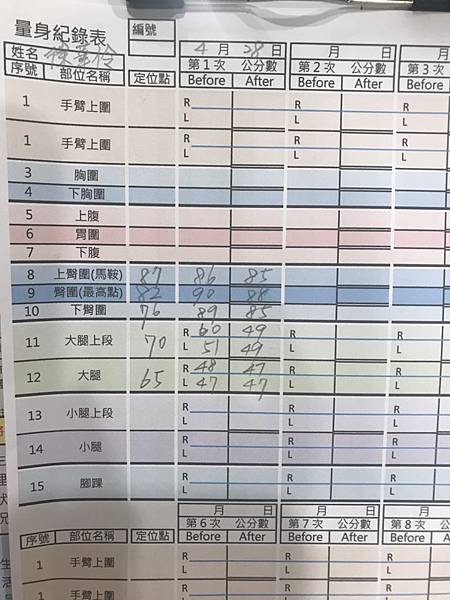 量身紀錄表 編號
姓名 4月28日 月 日 月
序號 部位名稱 定位點 第1次 公分數 第2次 公分數 第3次
Before After Before After Before
1 手臂上圍 R L R L R L
1 手臂上圍 R L R L R L
3 胸圍
4 下胸圍
5 上腹
6 胃圍
7 下腹
8 上臀圍(馬鞍) 87 86 85
9 臀圍(最高點) 82 90 88
10 下臀圍 76 89 85
11 大腿上段 70 R 60 49 R R
L 51 49 L L
12 大腿 65 R 48 47 R R
L 47 47 L L
13 小腿上段 R L R L R L
14 小腿 R L R L R L
15 腳踝 R L R L R L
月 日 月 日 月
序號 部位名稱 定位點 第6次 公分數 第7次 公分數 第8次
Before After Before After Before
1 手臂上圍 R L R L R L
1 手臂上圍 R R R